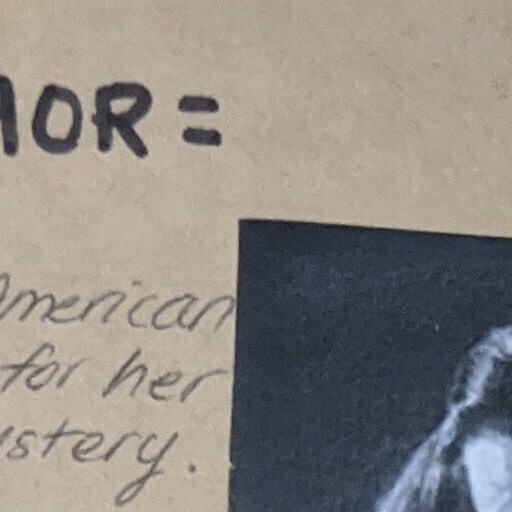 OR =
American
for her
ystery.